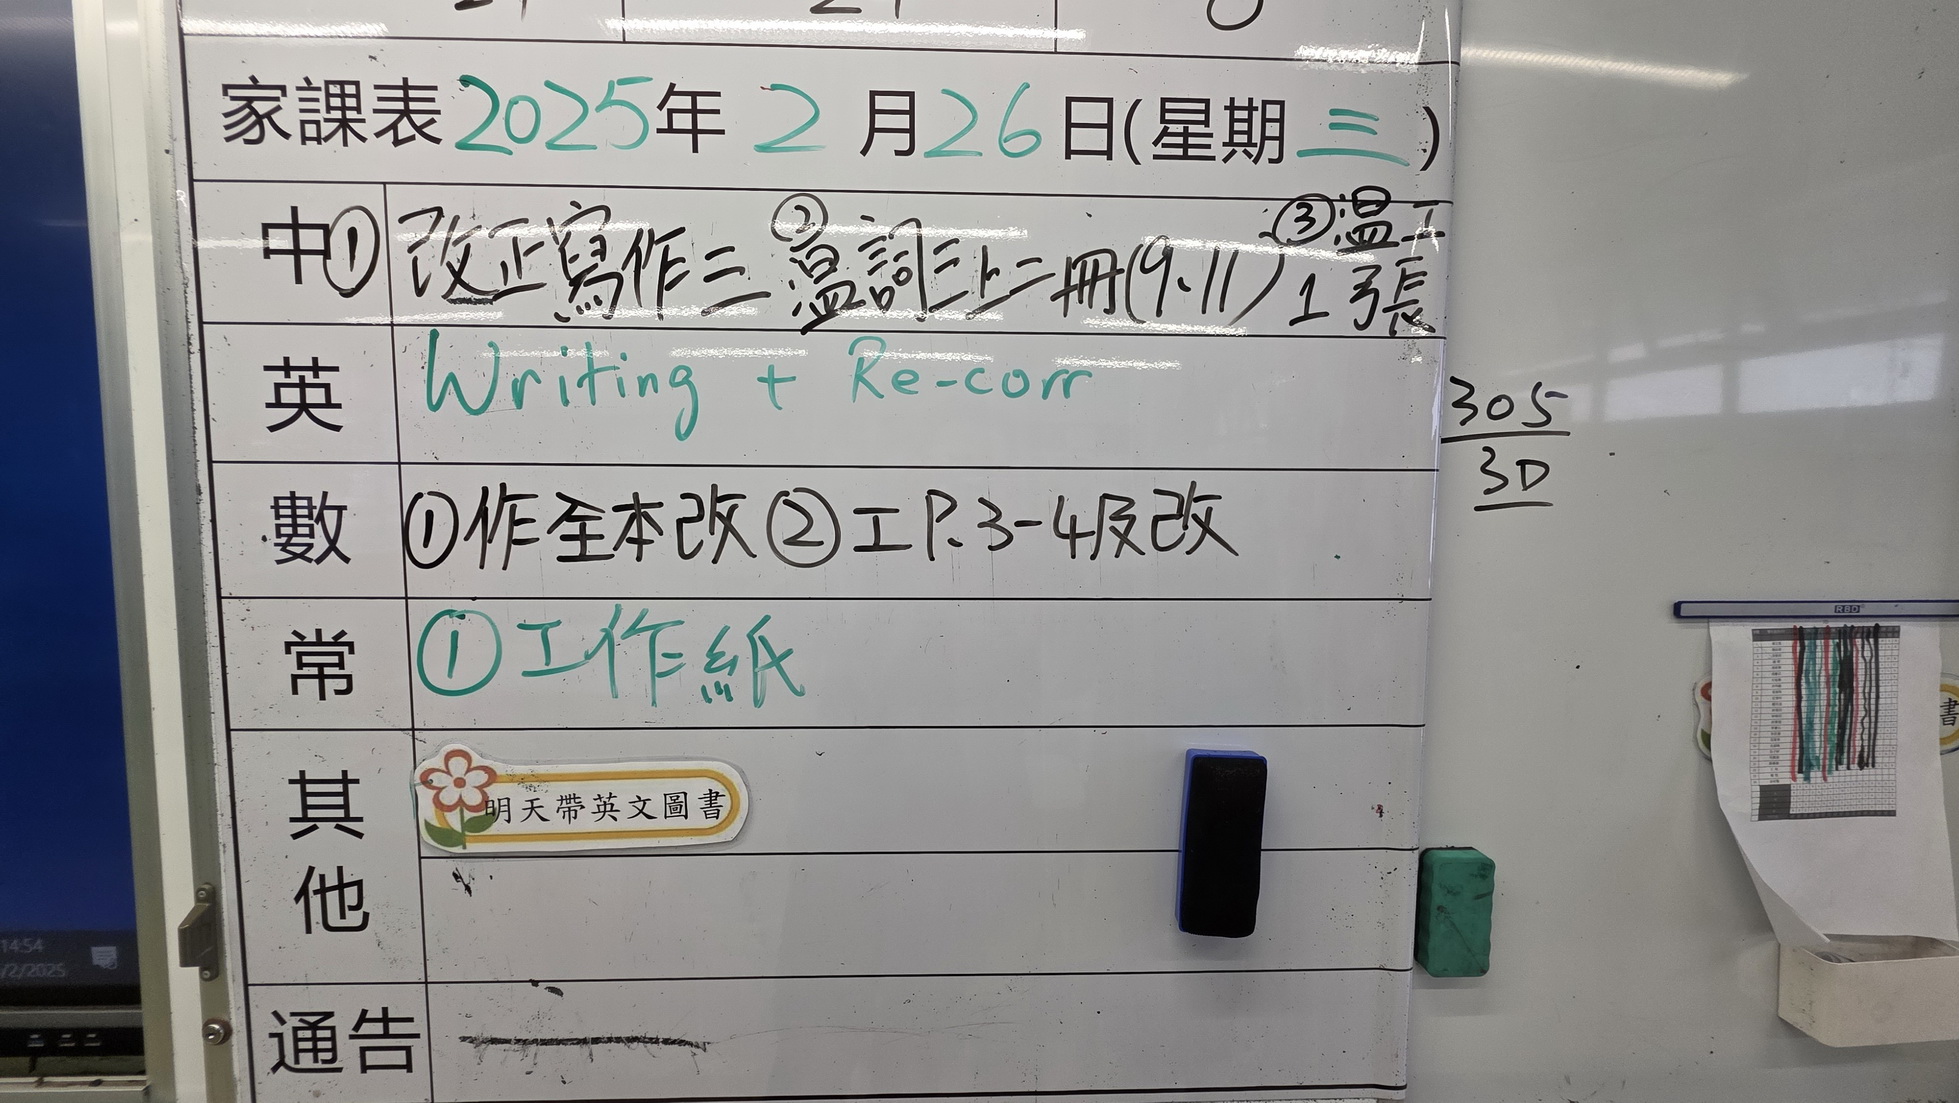 家課表2025年2月26日(星期三)
中①改正寫作三 ②溫詞三上二冊(9、11) ③溫工1張
英 Writing + Re-corr
305
30
數 ①作至本改②工P.3-4及改
常 ①工作紙
其他 明天帶英文圖書
通告
RBD
書
14:54
/2/2025